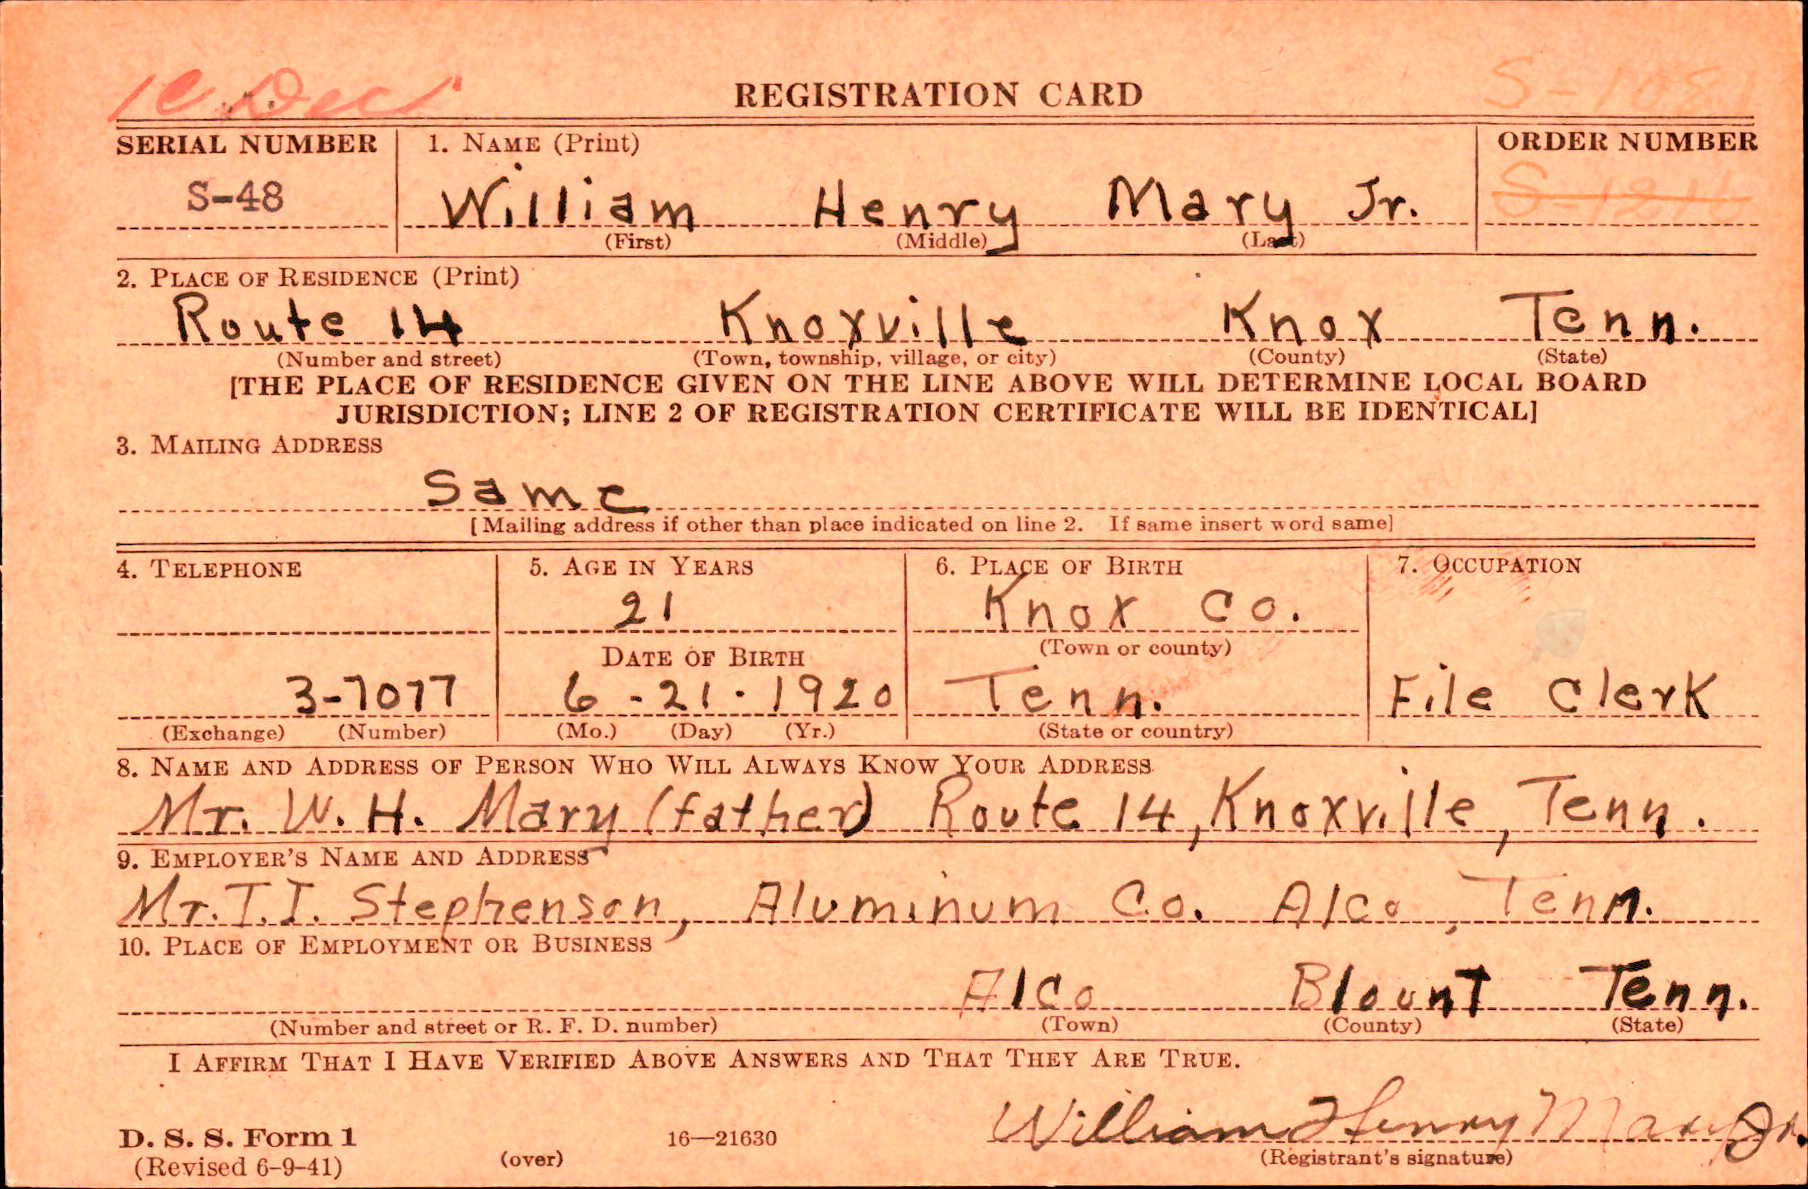 REGISTRATION CARD
SERIAL NUMBER 1. NAME (Print) ORDER NUMBER
S-48 William Henry Mary Jr.
(First) (Middle) (Last)
2. PLACE OF RESIDENCE (Print)
Route 14 Knoxville Knox Tenn.
(Number and street) (Town, township, village, or city) (County) (State)
[THE PLACE OF RESIDENCE GIVEN ON THE LINE ABOVE WILL DETERMINE LOCAL BOARD
JURISDICTION; LINE 2 OF REGISTRATION CERTIFICATE WILL BE IDENTICAL]
3. MAILING ADDRESS
Same
[Mailing address if other than place indicated on line 2. If same insert word same]
4. TELEPHONE 5. AGE IN YEARS 6. PLACE OF BIRTH 7. OCCUPATION
21 Knox Co.
DATE OF BIRTH (Town or county)
3-7077 6-21-1920 Tenn. File Clerk
(Exchange) (Number) (Mo.) (Day) (Yr.) (State or country)
8. NAME AND ADDRESS OF PERSON WHO WILL ALWAYS KNOW YOUR ADDRESS
Mr. W. H. Mary (father) Route 14, Knoxville, Tenn.
9. EMPLOYER'S NAME AND ADDRESS
Mr. T. I. Stephenson, Aluminum Co. Alco, Tenn.
10. PLACE OF EMPLOYMENT OR BUSINESS
Alco Blount Tenn.
(Number and street or R. F. D. number) (Town) (County) (State)
I AFFIRM THAT I HAVE VERIFIED ABOVE ANSWERS AND THAT THEY ARE TRUE.
William Henry Mary Jr.
D. S. S. Form 1 16—21630
(Revised 6-9-41) (over) (Registrant's signature)